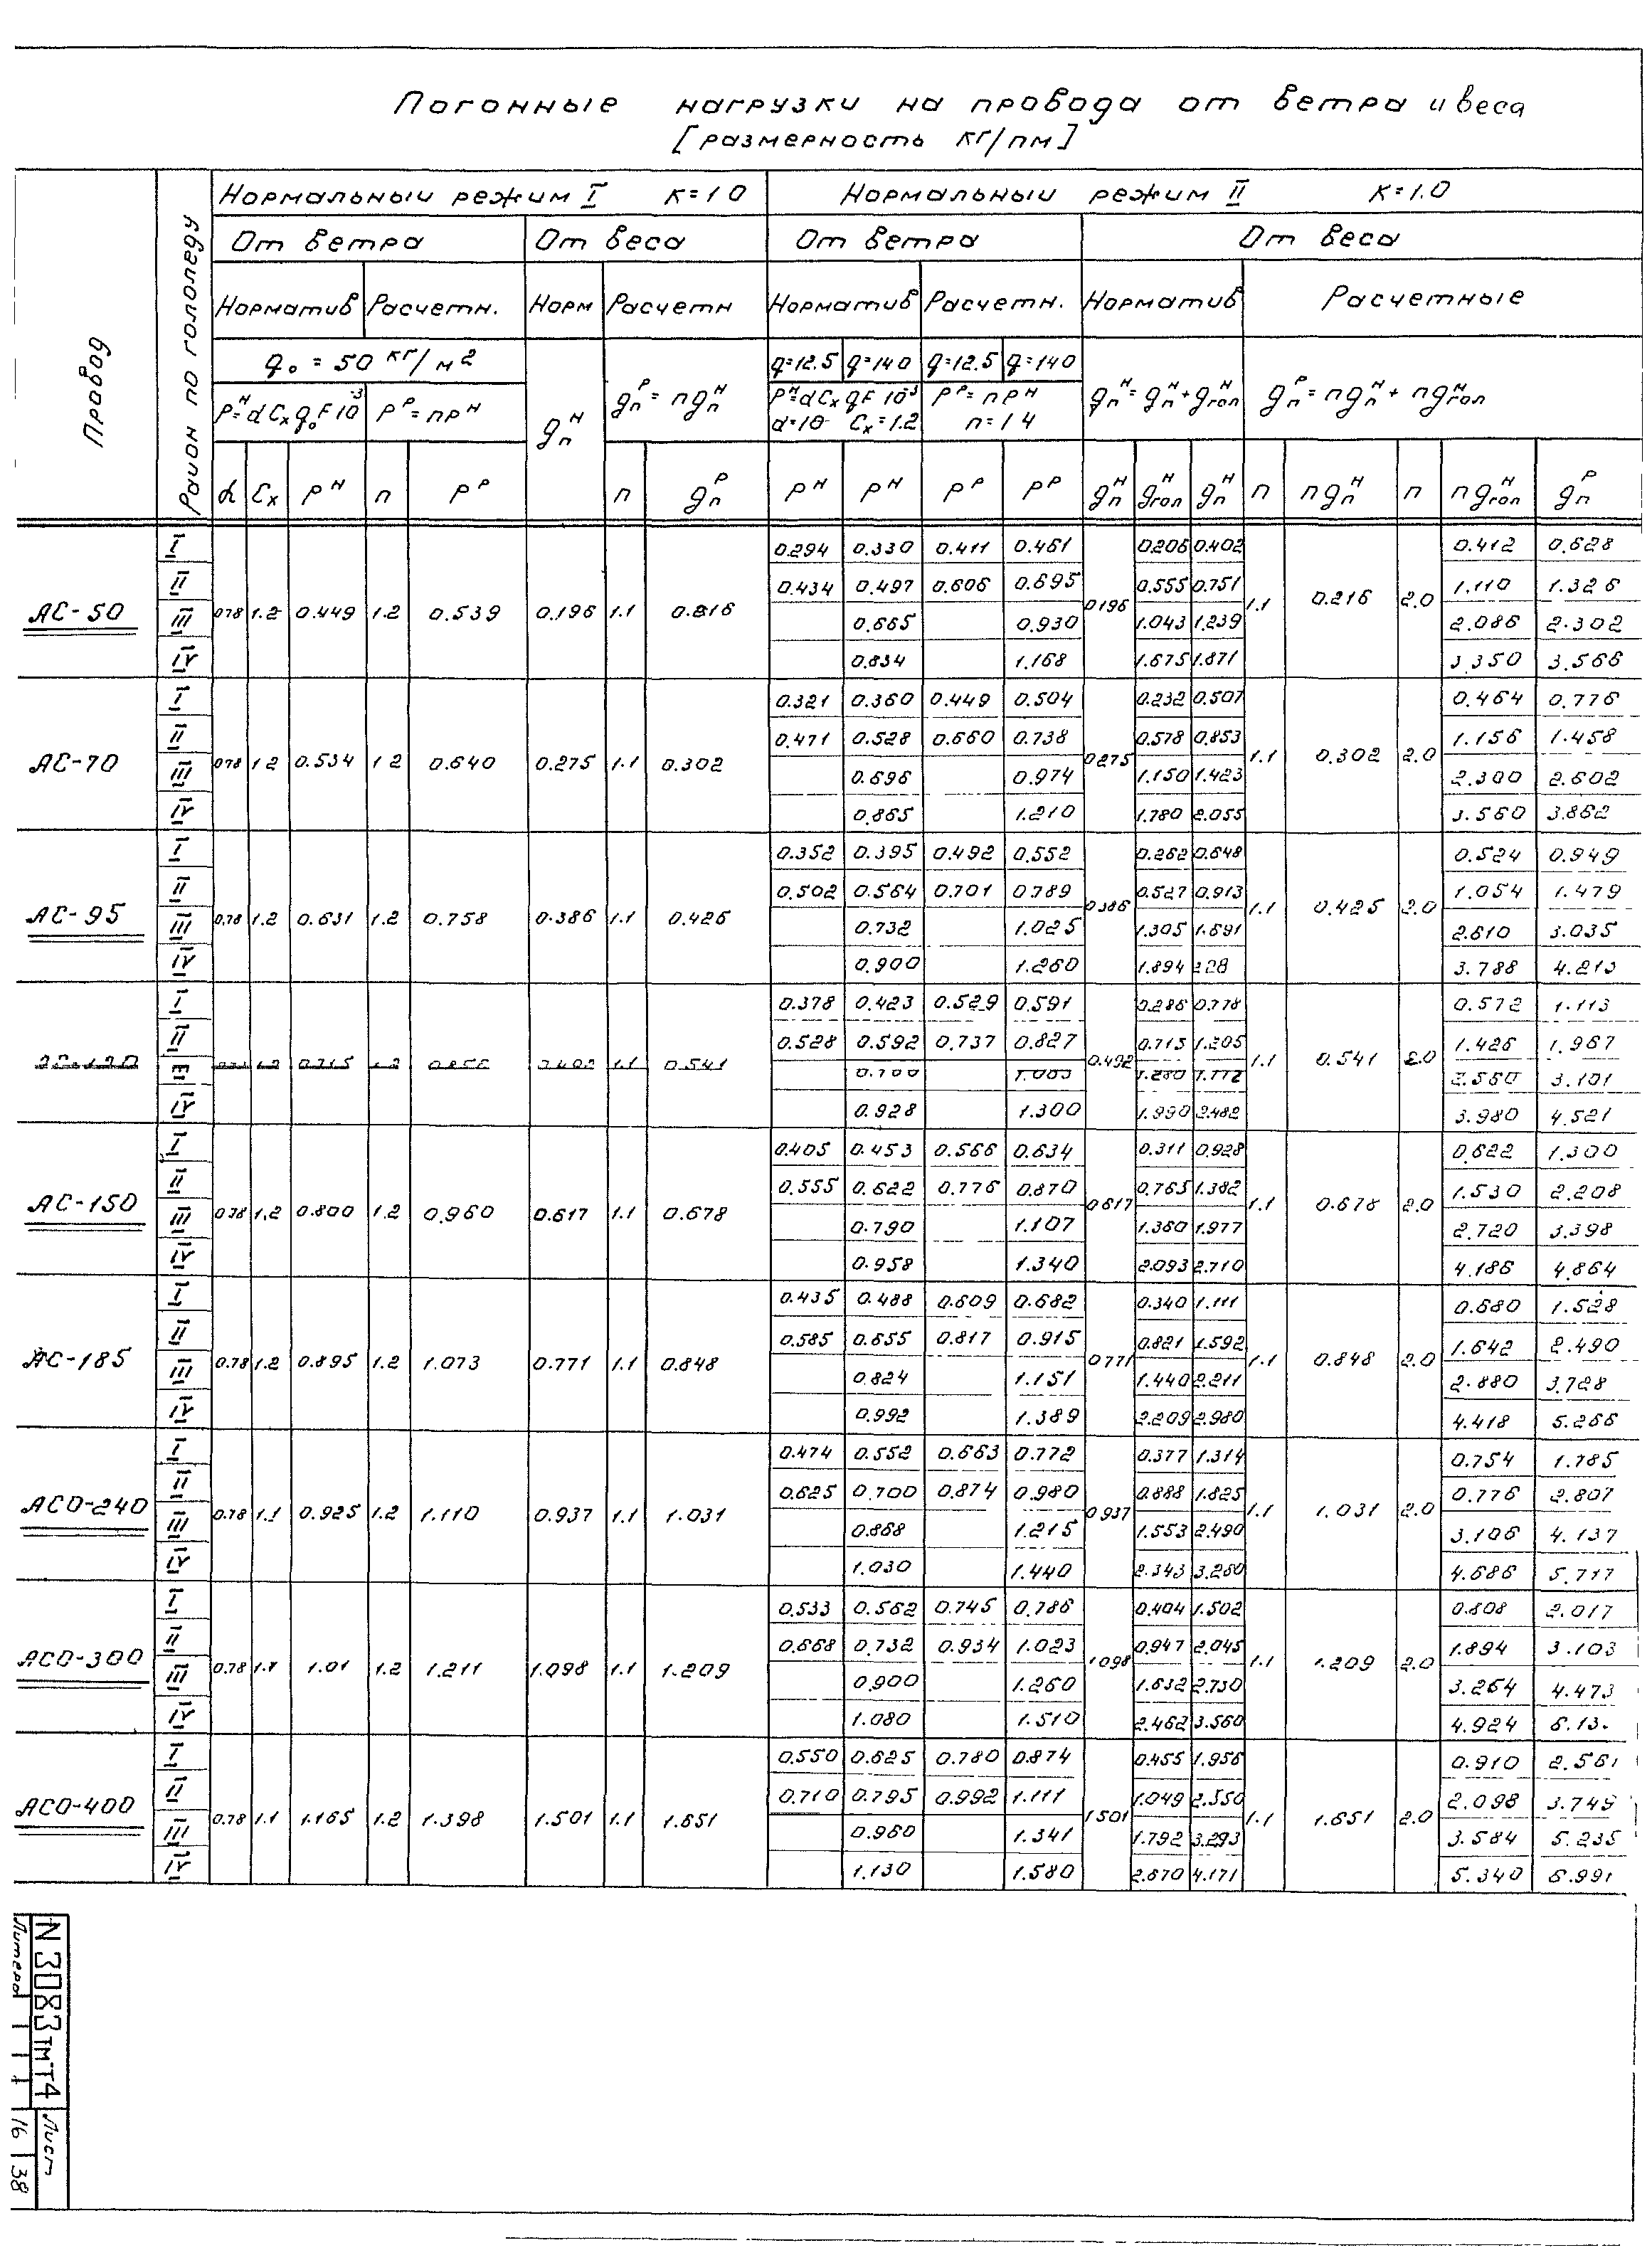 Погонные нагрузки на провода от ветра и веса
[размерность кг/пм]
Провод
Район по гололеду
Нормальный режим I К=1 0
Нормальный режим II К=1.0
От ветра
От веса
От ветра
От веса
Норматив Расчетн. Норм Расчетн Норматив Расчетн. Норматив Расчетные
q₀ = 50 кг/м²
q=12.5 q=14 0 q=12.5 q=14 0
Pᴴ=αCₓq₀F10⁻³ Pᴾ=nPᴴ gₙᴴ gₙᴾ=ngₙᴴ Pᴴ=αCₓqF 10⁻³ Pᴾ=nPᴴ gₙᴴ=gₙᴴ+gголᴴ gₙᴾ=ngₙᴴ+ngголᴴ
α=10 Cₓ=1.2 n=1 4
α Cₓ Pᴴ n Pᴾ n gₙᴾ Pᴴ Pᴴ Pᴾ Pᴾ gₙᴴ gголᴴ gₙᴴ n ngₙᴴ n ngголᴴ gₙᴾ
I 0.294 0.330 0.411 0.461 0.206 0.402 0.412 0.628
II 0.434 0.497 0.606 0.695 0.555 0.751 1.110 1.326
АС-50 0.78 1.2 0.449 1.2 0.539 0.196 1.1 0.816 0196 1.1 0.216 2.0
III 0.665 0.930 1.043 1.239 2.086 2.302
IV 0.834 1.168 1.675 1.871 3.350 3.566
I 0.321 0.360 0.449 0.504 0.232 0.507 0.464 0.776
II 0.471 0.528 0.660 0.738 0.578 0.853 1.156 1.458
АС-70 078 1 2 0.534 1 2 0.640 0.275 1.1 0.302 0275 1.1 0.302 2.0
III 0.696 0.974 1.150 1.423 2.300 2.602
IV 0.865 1.210 1.780 2.055 3.560 3.862
I 0.352 0.395 0.492 0.552 0.262 0.648 0.524 0.949
II 0.502 0.564 0.701 0.789 0.527 0.913 1.054 1.479
АС-95 0.78 1.2 0.631 1.2 0.758 0.386 1.1 0.426 0.386 1.1 0.425 2.0
III 0.732 1.025 1.305 1.691 2.610 3.035
IV 0.900 1.260 1.894 2.28 3.788 4.213
I 0.378 0.423 0.529 0.591 0.286 0.778 0.572 1.113
II 0.528 0.592 0.737 0.827 0.713 1.205 1.426 1.967
1.1 0.541 0.492 1.1 0.541 2.0
1.280 1.772 2.560 3.101
IV 0.928 1.300 1.990 2.482 3.980 4.521
I 0.405 0.453 0.566 0.634 0.311 0.928 0.622 1.300
II 0.555 0.622 0.776 0.870 0.765 1.382 1.530 2.208
АС-150 0.78 1.2 0.800 1.2 0.960 0.617 1.1 0.678 0617 1.1 0.678 2.0
III 0.790 1.107 1.360 1.977 2.720 3.398
IV 0.958 1.340 2.093 2.710 4.186 4.864
I 0.435 0.488 0.609 0.682 0.340 1.111 0.680 1.528
II 0.585 0.655 0.817 0.915 0.821 1.592 1.642 2.490
АС-185 0.78 1.2 0.895 1.2 1.073 0.771 1.1 0.848 0771 1.1 0.848 2.0
III 0.824 1.151 1.440 2.211 2.880 3.728
IV 0.992 1.389 2.209 2.980 4.418 5.266
I 0.474 0.552 0.663 0.772 0.377 1.314 0.754 1.785
II 0.625 0.700 0.874 0.980 0.888 1.825 0.776 2.807
АСО-240 0.78 1.1 0.925 1.2 1.110 0.937 1.1 1.031 0937 1.1 1.031 2.0
III 0.868 1.215 1.553 2.490 3.106 4.137
IV 1.030 1.440 2.343 3.280 4.686 5.717
I 0.533 0.562 0.745 0.786 0.404 1.502 0.808 2.017
II 0.668 0.732 0.934 1.023 0.947 2.045 1.894 3.103
АСО-300 0.78 1.1 1.01 1.2 1.211 1.098 1.1 1.209 1.098 1.1 1.209 2.0
III 0.900 1.260 1.632 2.730 3.264 4.473
IV 1.080 1.510 2.462 3.560 4.924 6.13.
I 0.550 0.625 0.780 0.874 0.455 1.956 0.910 2.561
II 0.710 0.795 0.992 1.111 1.049 2.550 2.098 3.749
АСО-400 0.78 1.1 1.165 1.2 1.398 1.501 1.1 1.651 1.501 1.1 1.651 2.0
III 0.960 1.341 1.792 3.293 3.584 5.235
IV 1.130 1.580 2.670 4.171 5.340 6.991
N 3083тмт4 Лист
Литера 16 38